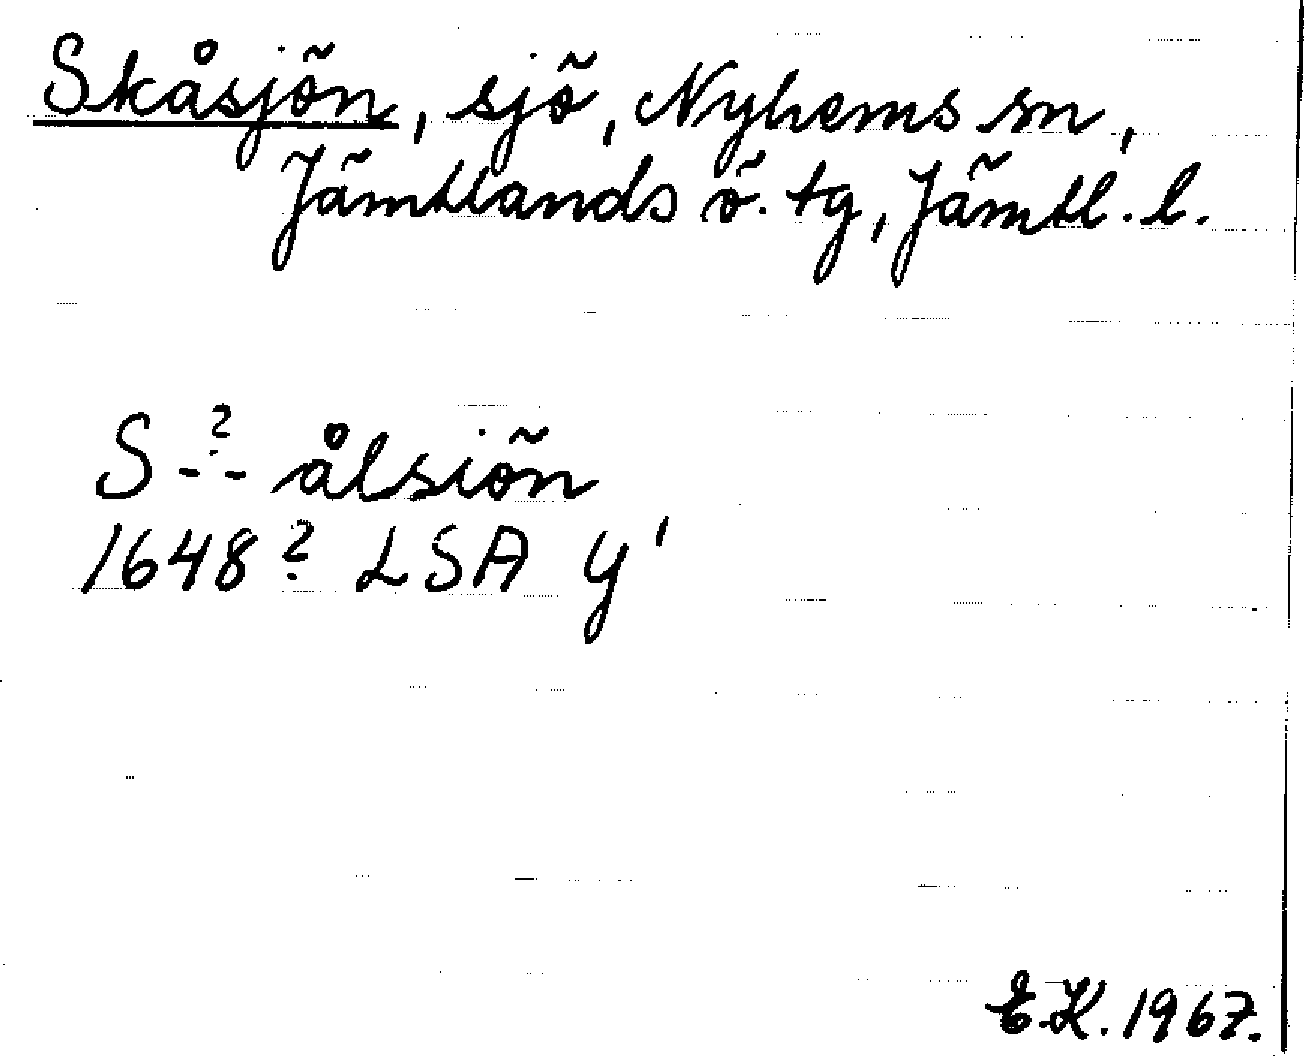 Skåsjön, sjö, Nyhems sn,
Jämtlands ö. tg, Jämtl. l.
S-?- ålsiön
1648? LSA Y'
E.K. 1967.